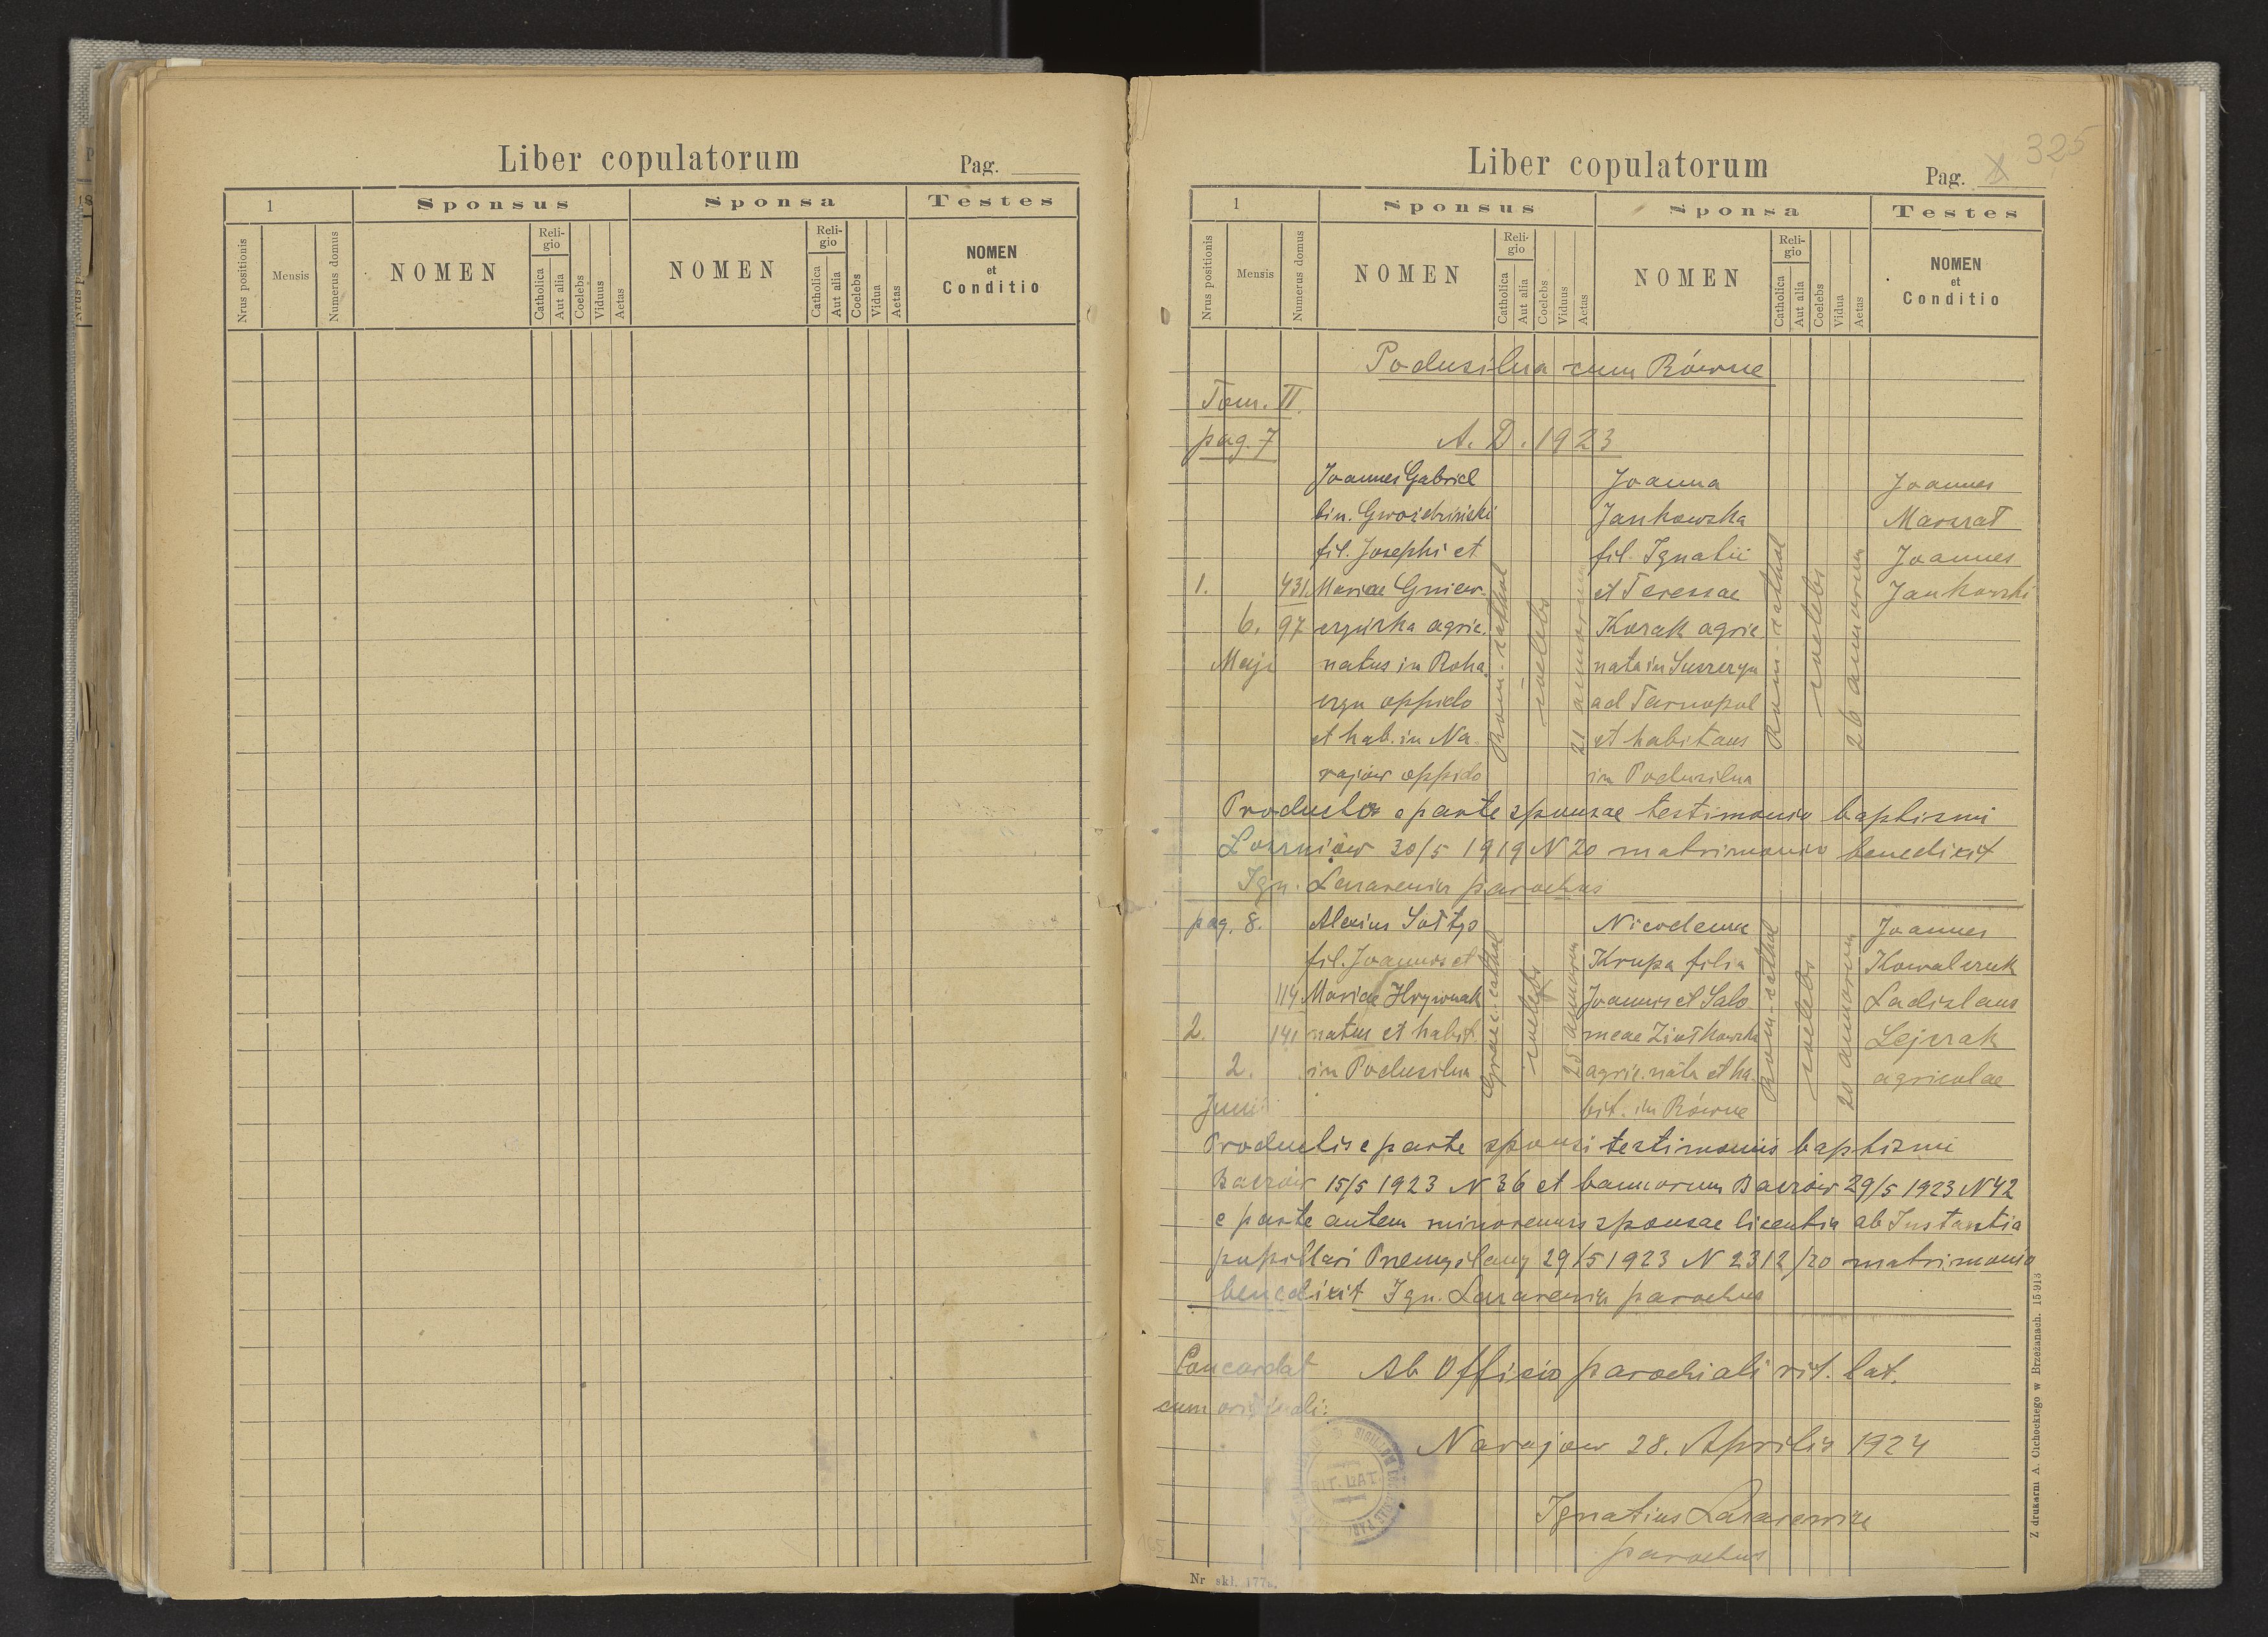 Liber copulatorum
Pag.
1
Sponsus
Sponsa
Testes
Nrus positionis
Mensis
Numerus domus
NOMEN
Religio
Catholica
Aut alia
Coelebs
Viduus
Aetas
NOMEN
Religio
Catholica
Aut alia
Coelebs
Vidua
Aetas
NOMEN
et
Conditio
Liber copulatorum
Pag.
325
1
Sponsus
Sponsa
Testes
Nrus positionis
Mensis
Numerus domus
NOMEN
Religio
Catholica
Aut alia
Coelebs
Viduus
Aetas
NOMEN
Religio
Catholica
Aut alia
Coelebs
Vidua
Aetas
NOMEN
et
Conditio
Podusilna cum Równe
Tom. II.
pag. 7
A. D. 1923
1.
6.
Maji
431
97
Joannes Gabriel
bin. Gwoździński
fil. Josephi et
Mariae Gniew-
czyńska agric.
natus in Roha
czyn oppido
et hab. in Na-
rajów oppido
Rom-cathol
coelebs
21 annorum
Joanna
Jankowska
fil. Ignatii
et Teressae
Kozak agric
nata in Suszczyn
ad Tarnopol
et habitans
in Podusilna
Rom-cathol
coelebs
26 annorum
Joannes
Marszał
Joannes
Jankowski
Producto e parte sponsae testimonio baptismi
30/5 1919 N 20 matrimonio benedixit
Ign. Lazarewicz parochus
pag. 8.
2.
2.
Junii
114
141
Alexius Sołtys
fil. Joannis et
Mariae Hrywnak
natus et habit.
in Podusilna
Graec-cathol
coelebs
25 annorum
Nicodema
Krupa filia
Joannis et Salo
meae Ziółkowska
agric. nata et ha-
bit. in Równe
Rom-cathol
coelebs
20 annorum
Joannes
Kowalczuk
Ladislaus
Lejczak
agricolae
Productis e parte sponsi testimoniis baptismi
Baczów 15/5 1923 N 36 et bannorum Baczów 29/5 1923 N 42
e parte autem minorennis sponsae licentia ab Instantia
pupillari Przemyślany 29/5 1923 N 2312/20 matrimonio
benedixit Ign. Lazarewicz parochus
Concordat
cum originali:
Ab Officio parochiali rit. lat.
Narajow 28. Aprilis 1924
RIT. LAT.
Ignatius Lazarewicz
parochus
Nr skl. 177
Z drukarni A. Cichockiego w Brzeżanach. 15·913